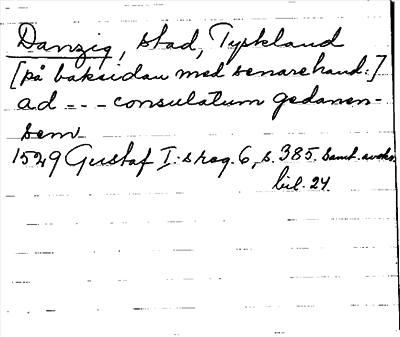 Danzig, stad, Tyskland
[på baksidan med senare hand:]
ad - - - consulatum gedanen-
sem
1529 Gustaf I:s reg. 6, s. 385. Samt. avskr.
bil. 24.